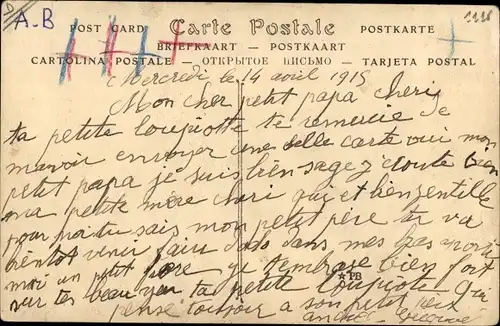 A-B
1118
POST CARD Carte Postale POSTKARTE
BRIEFKAART — POSTKAART
CARTOLINA POSTALE — ОТКРЫТОЕ ПИСЬМО — TARJETA POSTAL
Mercredi le 14 avril 1915
Mon cher petit papa cheri
ta petite loupiotte te remercie de
mavoir envoyer une belle carte oui mon
petit papa je suis bien sage j'écoute bien
ma petite mère cheri qui et bien gentille
pour moi tu sais mon petit père tu va
bientot venir faire dodo dans mes bras
moi un petit je t'embrase bien fort
sur tes beau ta petite loupiote qui
pense toujour a son petit
PB